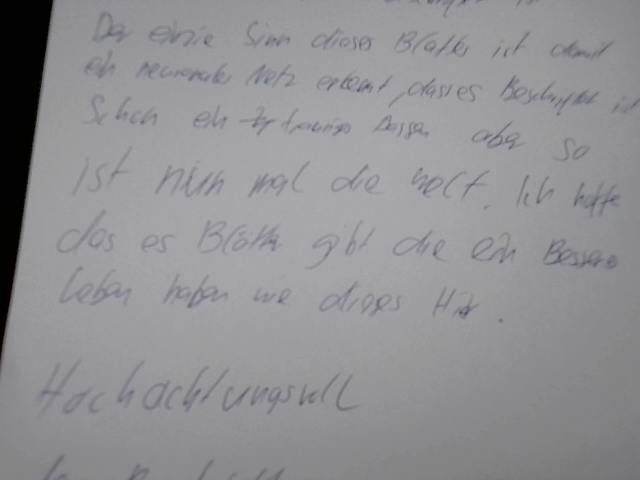 Der einzie Sinn dieses Blattes ist damit
ein neuronales Netz erkennt, dass es Beschriftet ist
Schon ein trauriges Dassen aber so
ist nun mal die welt. Ich hoffe
das es Blätter gibt die ein Besseres
leben haben wie dieses Hier.
Hochachtungsvoll